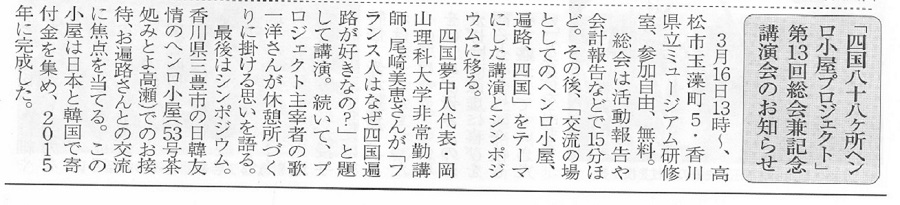 「四国八十八ヶ所ヘン
ロ小屋プロジェクト」
第13回総会兼記念
講演会のお知らせ
3月16日13時〜、高
松市玉藻町5・香川
県立ミュージアム研修
室、参加自由、無料。
総会は活動報告や
会計報告などで15分ほ
ど。その後、「交流の場
としてのヘンロ小屋、
遍路、四国」をテーマ
にした講演とシンポジ
ウムに移る。
四国夢中人代表・岡
山理科大学非常勤講
師、尾崎美恵さんが「フ
ランス人はなぜ四国遍
路が好きなの?」と題
して講演。続いて、プ
ロジェクト主宰者の歌
一洋さんが休憩所づく
りに掛ける思いを語る。
最後はシンポジウム。
香川県三豊市の日韓友
情のヘンロ小屋(53号茶
処みとよ高瀬)でのお接
待、お遍路さんとの交流
に焦点を当てる。この
小屋は日本と韓国で寄
付金を集め、2015
年に完成した。